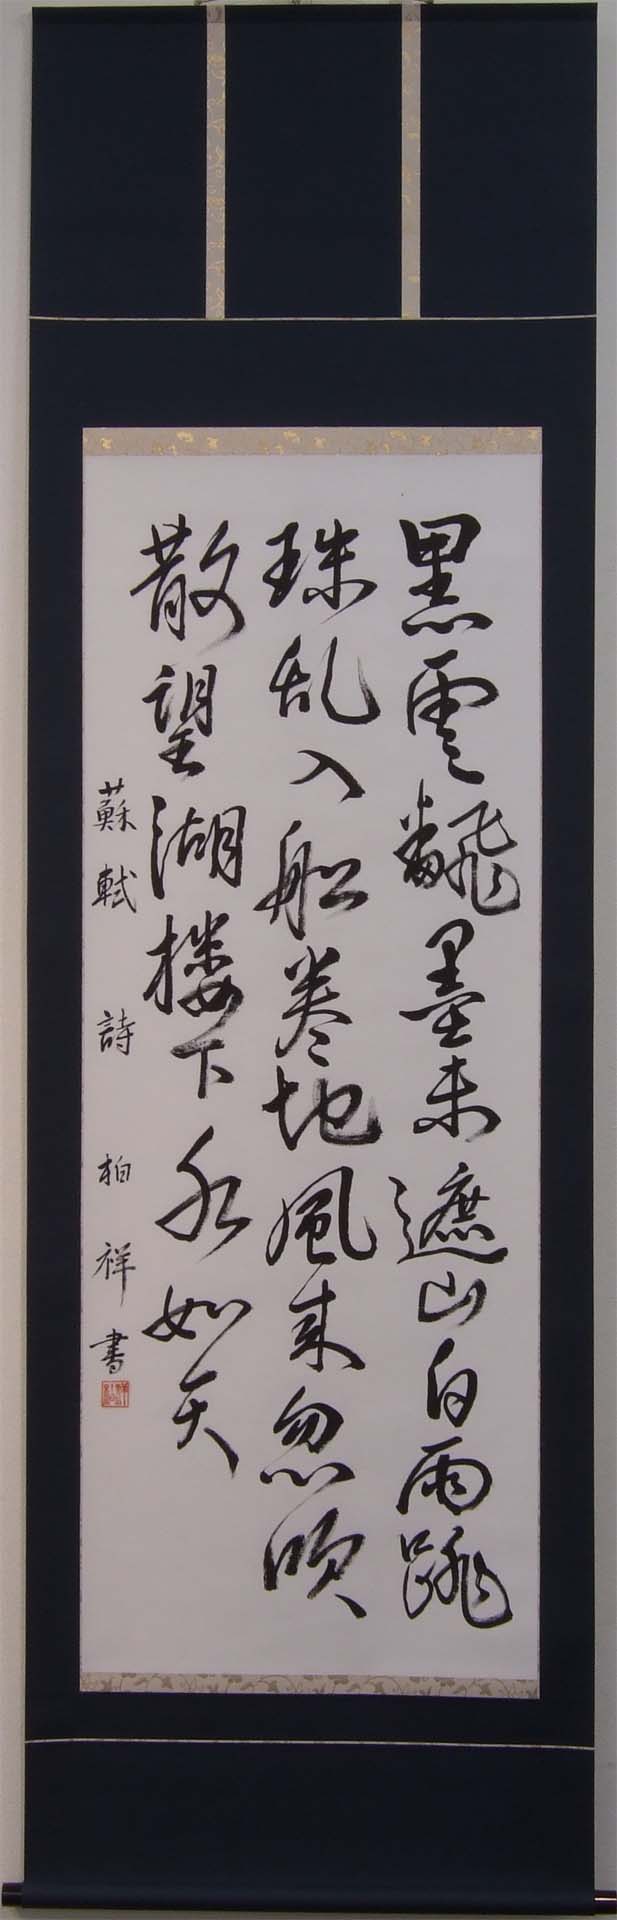 黒雲飜墨未遮山白雨跳
珠乱入船巻地風来忽吹
散望湖楼下水如天
蘇軾 詩 柏祥書